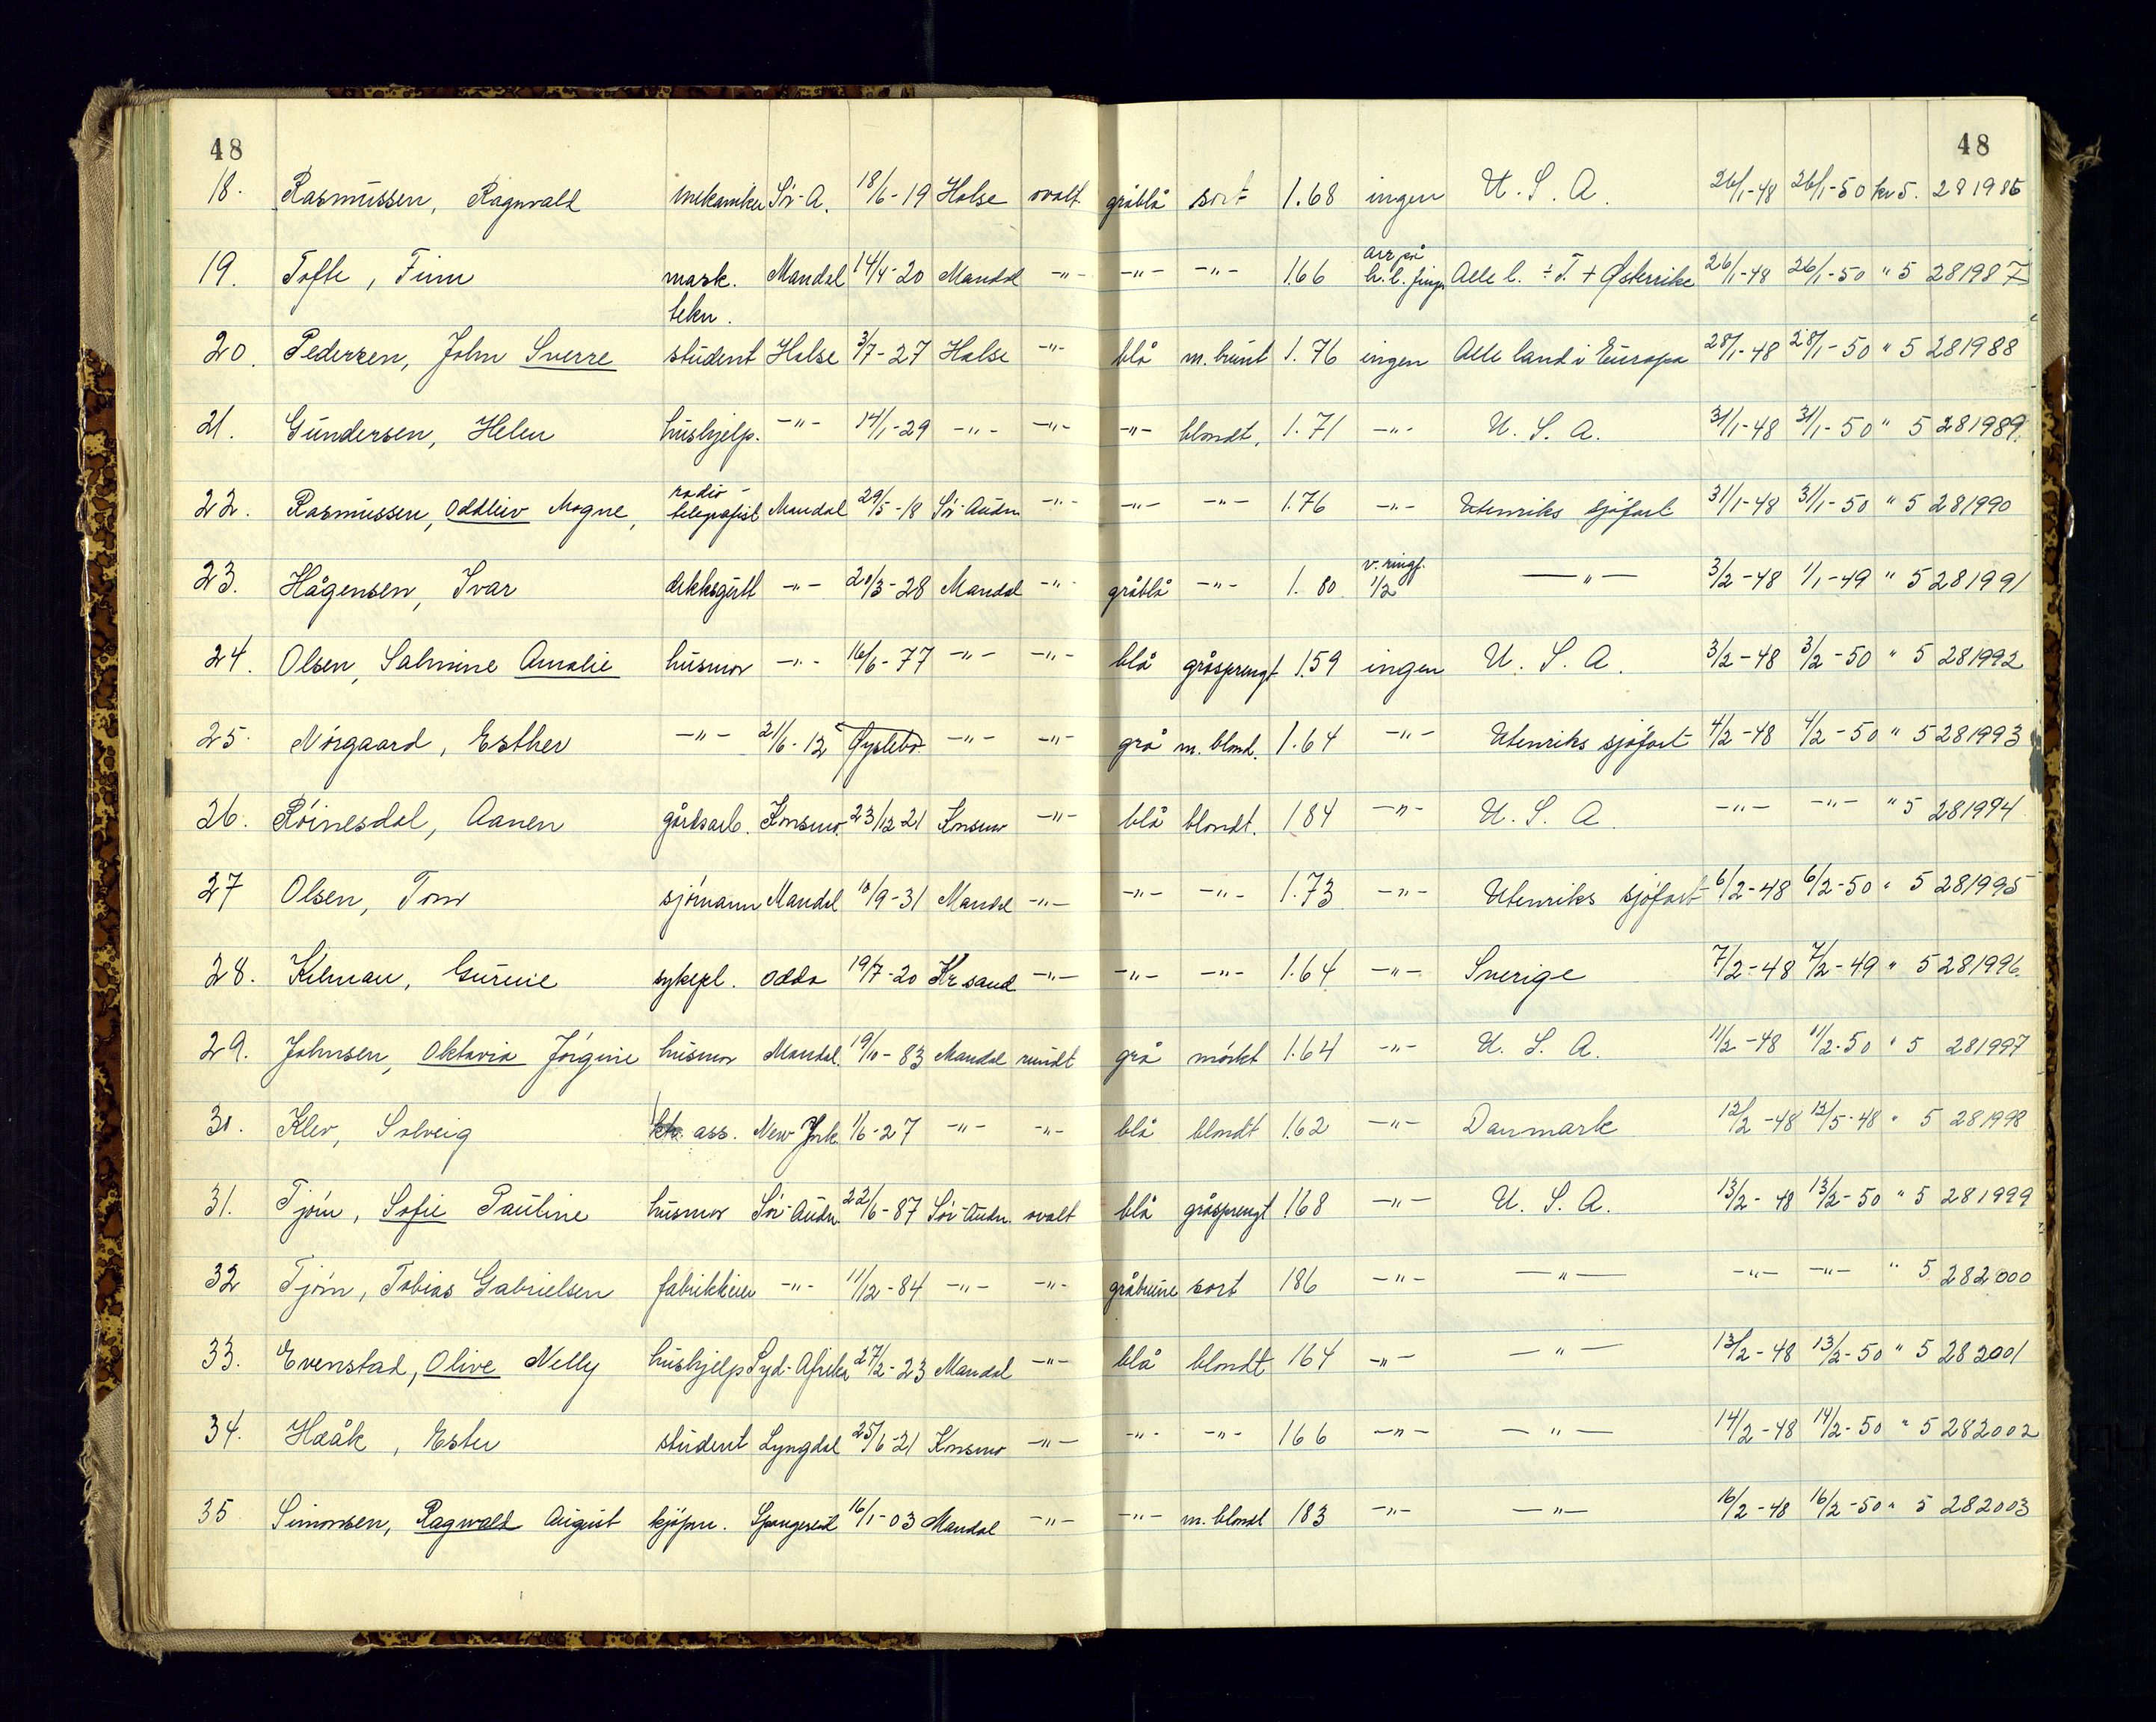 48 48
18. Rasmussen, Ragnvald mekaniker Sör-A. 18/6-19 Halse ovalt gråblå sort 1.68 ingen U. S. A. 26/1-48 26/1-50 kr 5. 281986
arr på
19. Tofte, Finn mask. Mandal 14/4-20 Mandal -"- -"- -"- 1.66 h. l. finger Alle l. ÷ T. + Österrike 26/1-48 26/1-50 " 5 281987
tekn.
20. Pedersen, John Sverre student Halse 3/7-27 Halse -"- blå m. brunt 1.76 ingen Alle land i Europa 28/1-48 28/1-50 " 5 281988
21. Gundersen, Helen hushjelp. -"- 14/1-29 -"- -"- -"- blondt. 1.71 -"- U. S. A. 31/1-48 31/1-50 " 5 281989.
radio-
22. Rasmussen, Oddleiv Mogne, telegrafist Mandal 29/5-18 Sör-Audn -"- -"- -"- 1.76 -"- Utenriks sjöfart 31/1-48 31/1-50 " 5 281990
v. ringf.
23. Hågensen, Ivar dekksgutt -"- 20/3-28 Mandal -"- gråblå -"- 1.80 1/2 -"- 3/2-48 1/1-49 " 5 281991
24. Olsen, Salmine Amalie husmor -"- 16/6-77 -"- -"- blå gråsprengt 1.59 ingen U. S. A. 3/2-48 3/2-50 " 5 281992
25. Nörgaard, Esther -"- 21/6-12 Öyslebö -"- -"- grå m. blond. 1.64 -"- Utenriks sjöfart 4/2-48 4/2-50 " 5 281993
26. Röinesdal, Aanen gårdsarb. Konsmo. 23/12 21 Konsmo -"- blå blondt. 184 -"- U. S. A. -"- -"- " 5 281994
27 Olsen, Tom sjömann Mandal 10/9-31 Mandal -"- -"- -"- 1.73 -"- Utenriks sjöfart 6/2-48 6/2-50 " 5 281995
28. Gurine sykepl. Odda 19/7-20 Kr sand -"- -"- -"- 1.64 -"- Sverige 7/2-48 7/2-49 " 5 281996.
29. Johnsen, Oktavia Jörgine husmor Mandal. 19/10-83 Mandal rundt grå mörkt 1.64 -"- U. S. A. 11/2-48 11/2-50 " 5 281997
30. Klev, Solveig ktr. ass. New York 1/6-27 -"- -"- blå blondt 1.62 -"- Danmark 12/2-48 12/5-48 " 5 281998
31. Tjöm, Sofie Pauline husmor Sör-Audn. 22/6-87 Sör-Audn. ovalt blå gråsprengt 168 -"- U. S. A. 13/2-48 13/2-50 " 5 281999
32 Tjöm, Tobias Gabrielsen fabrikkeier -"- 11/12-84 -"- -"- gråbrune sort 186 -"- -"- -"- -"- " 5. 282000
33. Evenstad, Olive Nelly hushjelp Syd-Afrika 27/2-23 Mandal -"- blå blondt 164 -"- -"- 13/2-48 13/2-50 " 5 282001
34. Haåk, Ester student Lyngdal 25/6-21 Konsmo -"- -"- -"- 166 -"- -"- 14/2-48 14/2-50 " 5 282002
35 Simonsen, Ragnvald August kjöpm. Spangereid 16/1-03 Mandal -"- -"- m. blondt 183 -"- -"- 16/2-48 16/2-50 " 5 282003